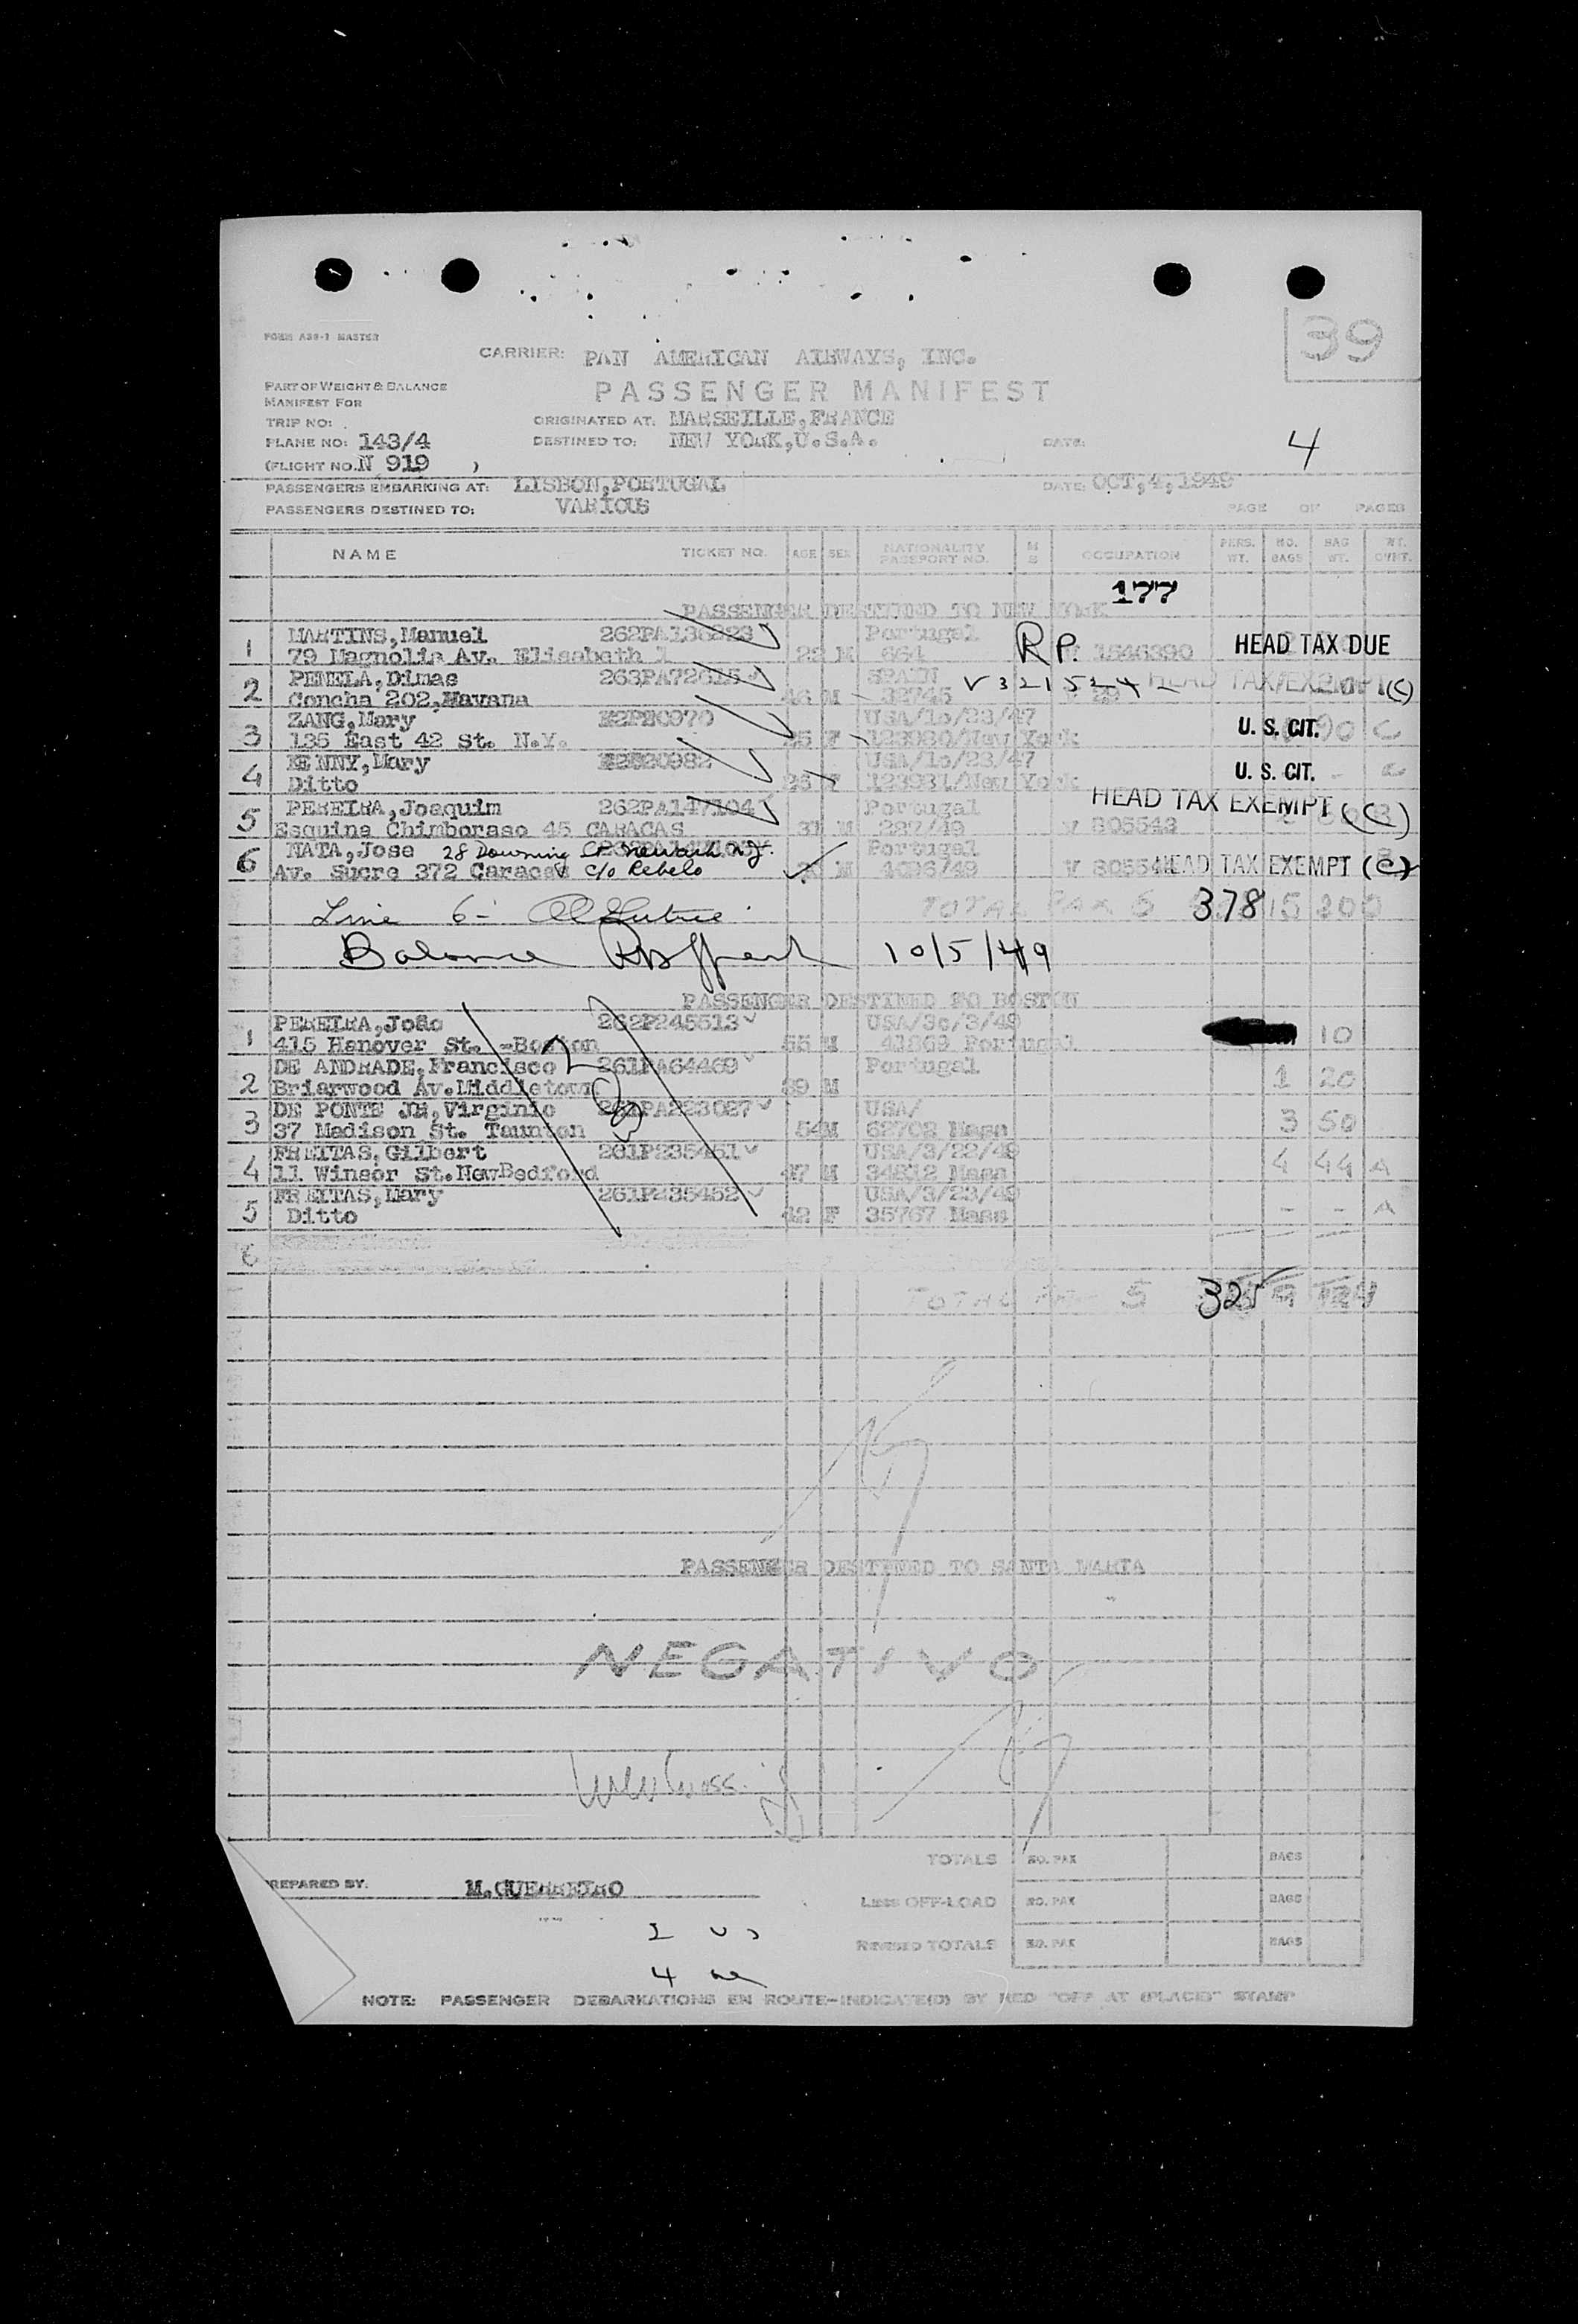 39
FORM A38-1 MASTER
CARRIER: PAN AMERICAN AIRWAYS, INC.
PART OF WEIGHT & BALANCE
MANIFEST FOR
PASSENGER MANIFEST
TRIP NO:
ORIGINATED AT: MARSEILLE, FRANCE
PLANE NO: 143/4
DESTINED TO: NEW YORK, U.S.A.
DATE:
4
(FLIGHT NO. N 919 )
PASSENGERS EMBARKING AT: LISBON, PORTUGAL
DATE: OCT, 4, 1949
PASSENGERS DESTINED TO: VARIOUS
PAGE OF PAGES
NAME TICKET NO. AGE SEX NATIONALITY PASSPORT NO. M S OCCUPATION PERS. WT. NO. BAGS BAG WT.
177
PASSENGER DESTINED TO NEW YORK
1 MARTINS, Manuel 262PA136823 Portugal R P. HEAD TAX DUE
79 Magnolia Av. Elisabeth 22 M 664 1546390
2 PENELA, Dimas 263PA72615 SPAIN V 321524 HEAD TAX EXEMPT (C)
Concha 202, Havana 46 M 32745
3 ZANG, Mary USA/10/23/47 U. S. CIT. C
135 East 42 St. N.Y. F 123980/New York
4 KENNY, Mary USA/10/23/47 U. S. CIT.
Ditto F 123931/New York
5 PEREIRA, Joaquim 262PA147104 Portugal HEAD TAX EXEMPT (C)
Esquina Chimboraso 45 CARACAS M 287/49 V 805543
6 NATA, Jose 28 Downing St Newark N.J. Portugal
Av. Sucre 372 Caracas c/o Rebelo M 4696/49 HEAD TAX EXEMPT (C)
Line 6 -
TOTAL PAX 6 378 15
Balance 10/5/49
PASSENGER DESTINED TO BOSTON
1 PEREIRA, João 262P245513 USA/30/3/49
415 Hanover St. -Boston 55 M 41869 Portugal 10
2 DE ANDRADE, Francisco 261PA64469 Portugal
Briarwood Av. Middletown M 1 20
3 DE PONTE JR, Virginio PA223027 USA/
37 Madison St. Taunton 54 M 62702 Mass 3 50
4 FREITAS, Gilbert 261P235451 USA/3/22/49
11 Winsor St. New Bedford 47 M 34812 Mass 4 44 A
5 FREITAS, Mary 261P235452 USA/3/23/49
Ditto 42 F 35767 Mass - - A
6
TOTAL PAX 5 325 9 124
PASSENGER DESTINED TO SANTA MARIA
NEGATIVO
TOTALS NO. PAX BAGS
PREPARED BY. M. GUERREIRO
LESS OFF-LOAD NO. PAX BAGS
2 US
REVISED TOTALS NO. PAX BAGS
4
NOTE: PASSENGER DEBARKATIONS EN ROUTE-INDICATE(D) BY RED "OFF AT (PLACE)" STAMP